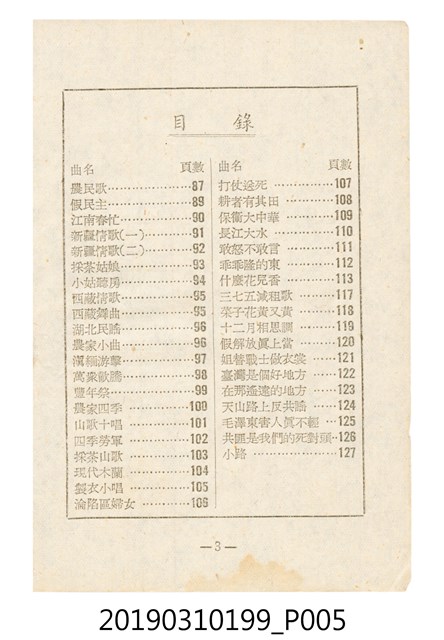 目錄
曲名 頁數
農民歌 87
假民主 89
江南春忙 90
新疆情歌(一) 91
新疆情歌(二) 92
採茶姑娘 93
小姑聽房 94
西藏情歌 95
西藏舞曲 95
湖北民謠 96
農家小曲 96
滇緬游擊 97
萬衆歡騰 98
豐年祭 99
農家四季 100
山歌十唱 101
四季勞軍 102
採茶山歌 103
現代木蘭 104
製衣小唱 105
淪陷區婦女 106
曲名 頁數
打仗送死 107
耕者有其田 108
保衛大中華 109
長江大水 110
敢怒不敢言 111
乖乖隆的東 112
什麼花兒香 113
三七五減租歌 117
菜子花黃又黃 118
十二月相思調 119
假解放眞上當 120
姐替戰士做衣裳 121
臺灣是個好地方 122
在那遙遠的地方 123
天山路上反共謠 124
毛澤東害人眞不輕 125
共匪是我們的死對頭 126
小路 127
—3—
20190310199_P005